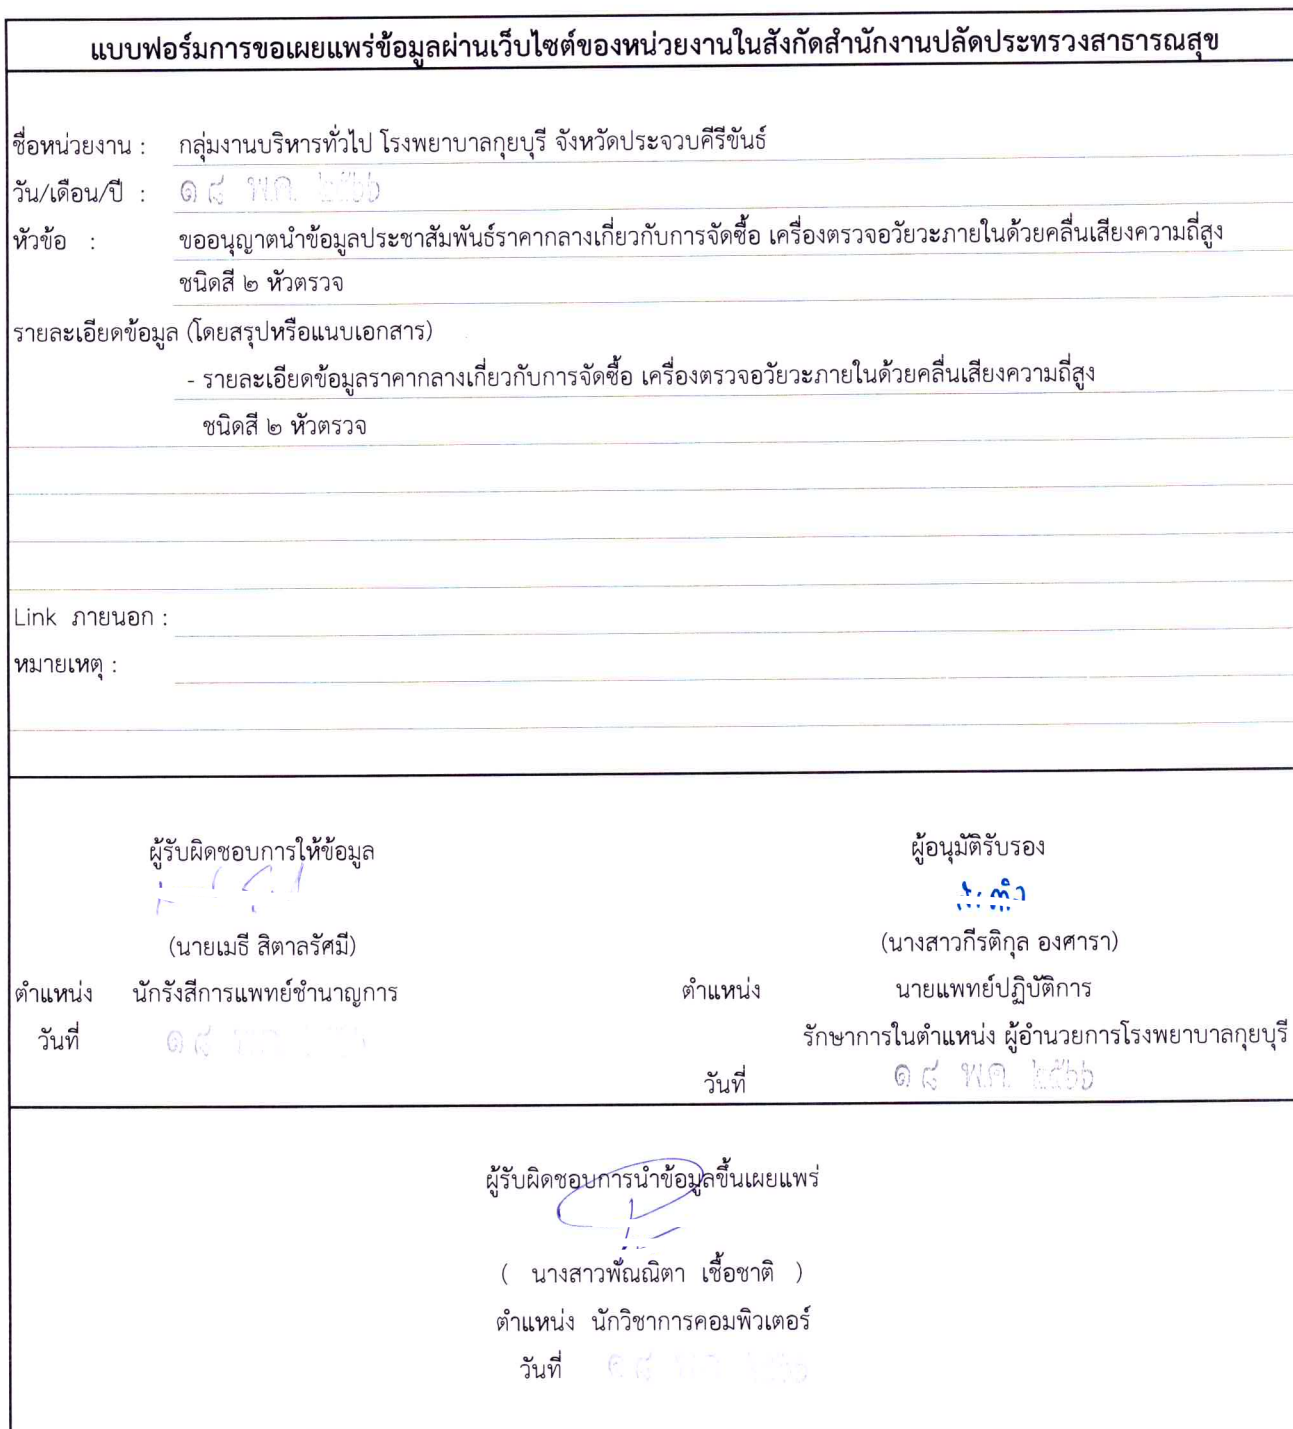 แบบฟอร์มการขอเผยแพร่ข้อมูลผ่านเว็บไซต์ของหน่วยงานในสังกัดสำนักงานปลัดประทรวงสาธารณสุข
ชื่อหน่วยงาน : กลุ่มงานบริหารทั่วไป โรงพยาบาลกุยบุรี จังหวัดประจวบคีรีขันธ์
วัน/เดือน/ปี : ๑๘ พ.ค. ๒๕๖๖
หัวข้อ : ขออนุญาตนำข้อมูลประชาสัมพันธ์ราคากลางเกี่ยวกับการจัดซื้อ เครื่องตรวจอวัยวะภายในด้วยคลื่นเสียงความถี่สูง
ชนิดสี ๒ หัวตรวจ
รายละเอียดข้อมูล (โดยสรุปหรือแนบเอกสาร)
- รายละเอียดข้อมูลราคากลางเกี่ยวกับการจัดซื้อ เครื่องตรวจอวัยวะภายในด้วยคลื่นเสียงความถี่สูง
ชนิดสี ๒ หัวตรวจ
Link ภายนอก :
หมายเหตุ :
ผู้รับผิดชอบการให้ข้อมูล
(นายเมธี สิตาลรัศมี)
ตำแหน่ง นักรังสีการแพทย์ชำนาญการ
วันที่ ๑๘ พ.ค.
ผู้อนุมัติรับรอง
(นางสาวกีรติกุล องศารา)
ตำแหน่ง นายแพทย์ปฏิบัติการ
รักษาการในตำแหน่ง ผู้อำนวยการโรงพยาบาลกุยบุรี
วันที่ ๑๘ พ.ค. ๒๕๖๖
ผู้รับผิดชอบการนำข้อมูลขึ้นเผยแพร่
( นางสาวพัณณิตา เชื้อชาติ )
ตำแหน่ง นักวิชาการคอมพิวเตอร์
วันที่